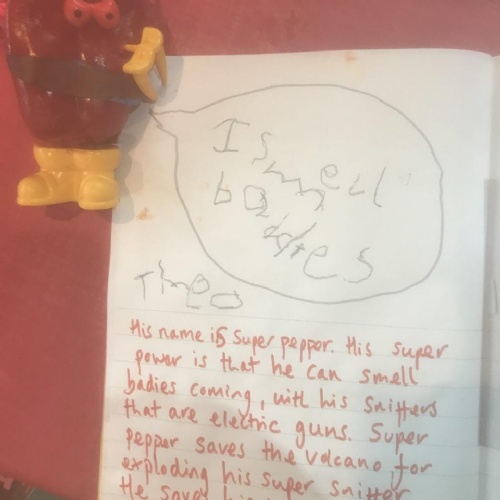 I smell
badies
Theo
His name is Super pepper. His super
power is that he can smell
badies coming, with his sniffers
that are electric guns. Super
pepper saves the volcano for
exploding his super sniffer
He saves